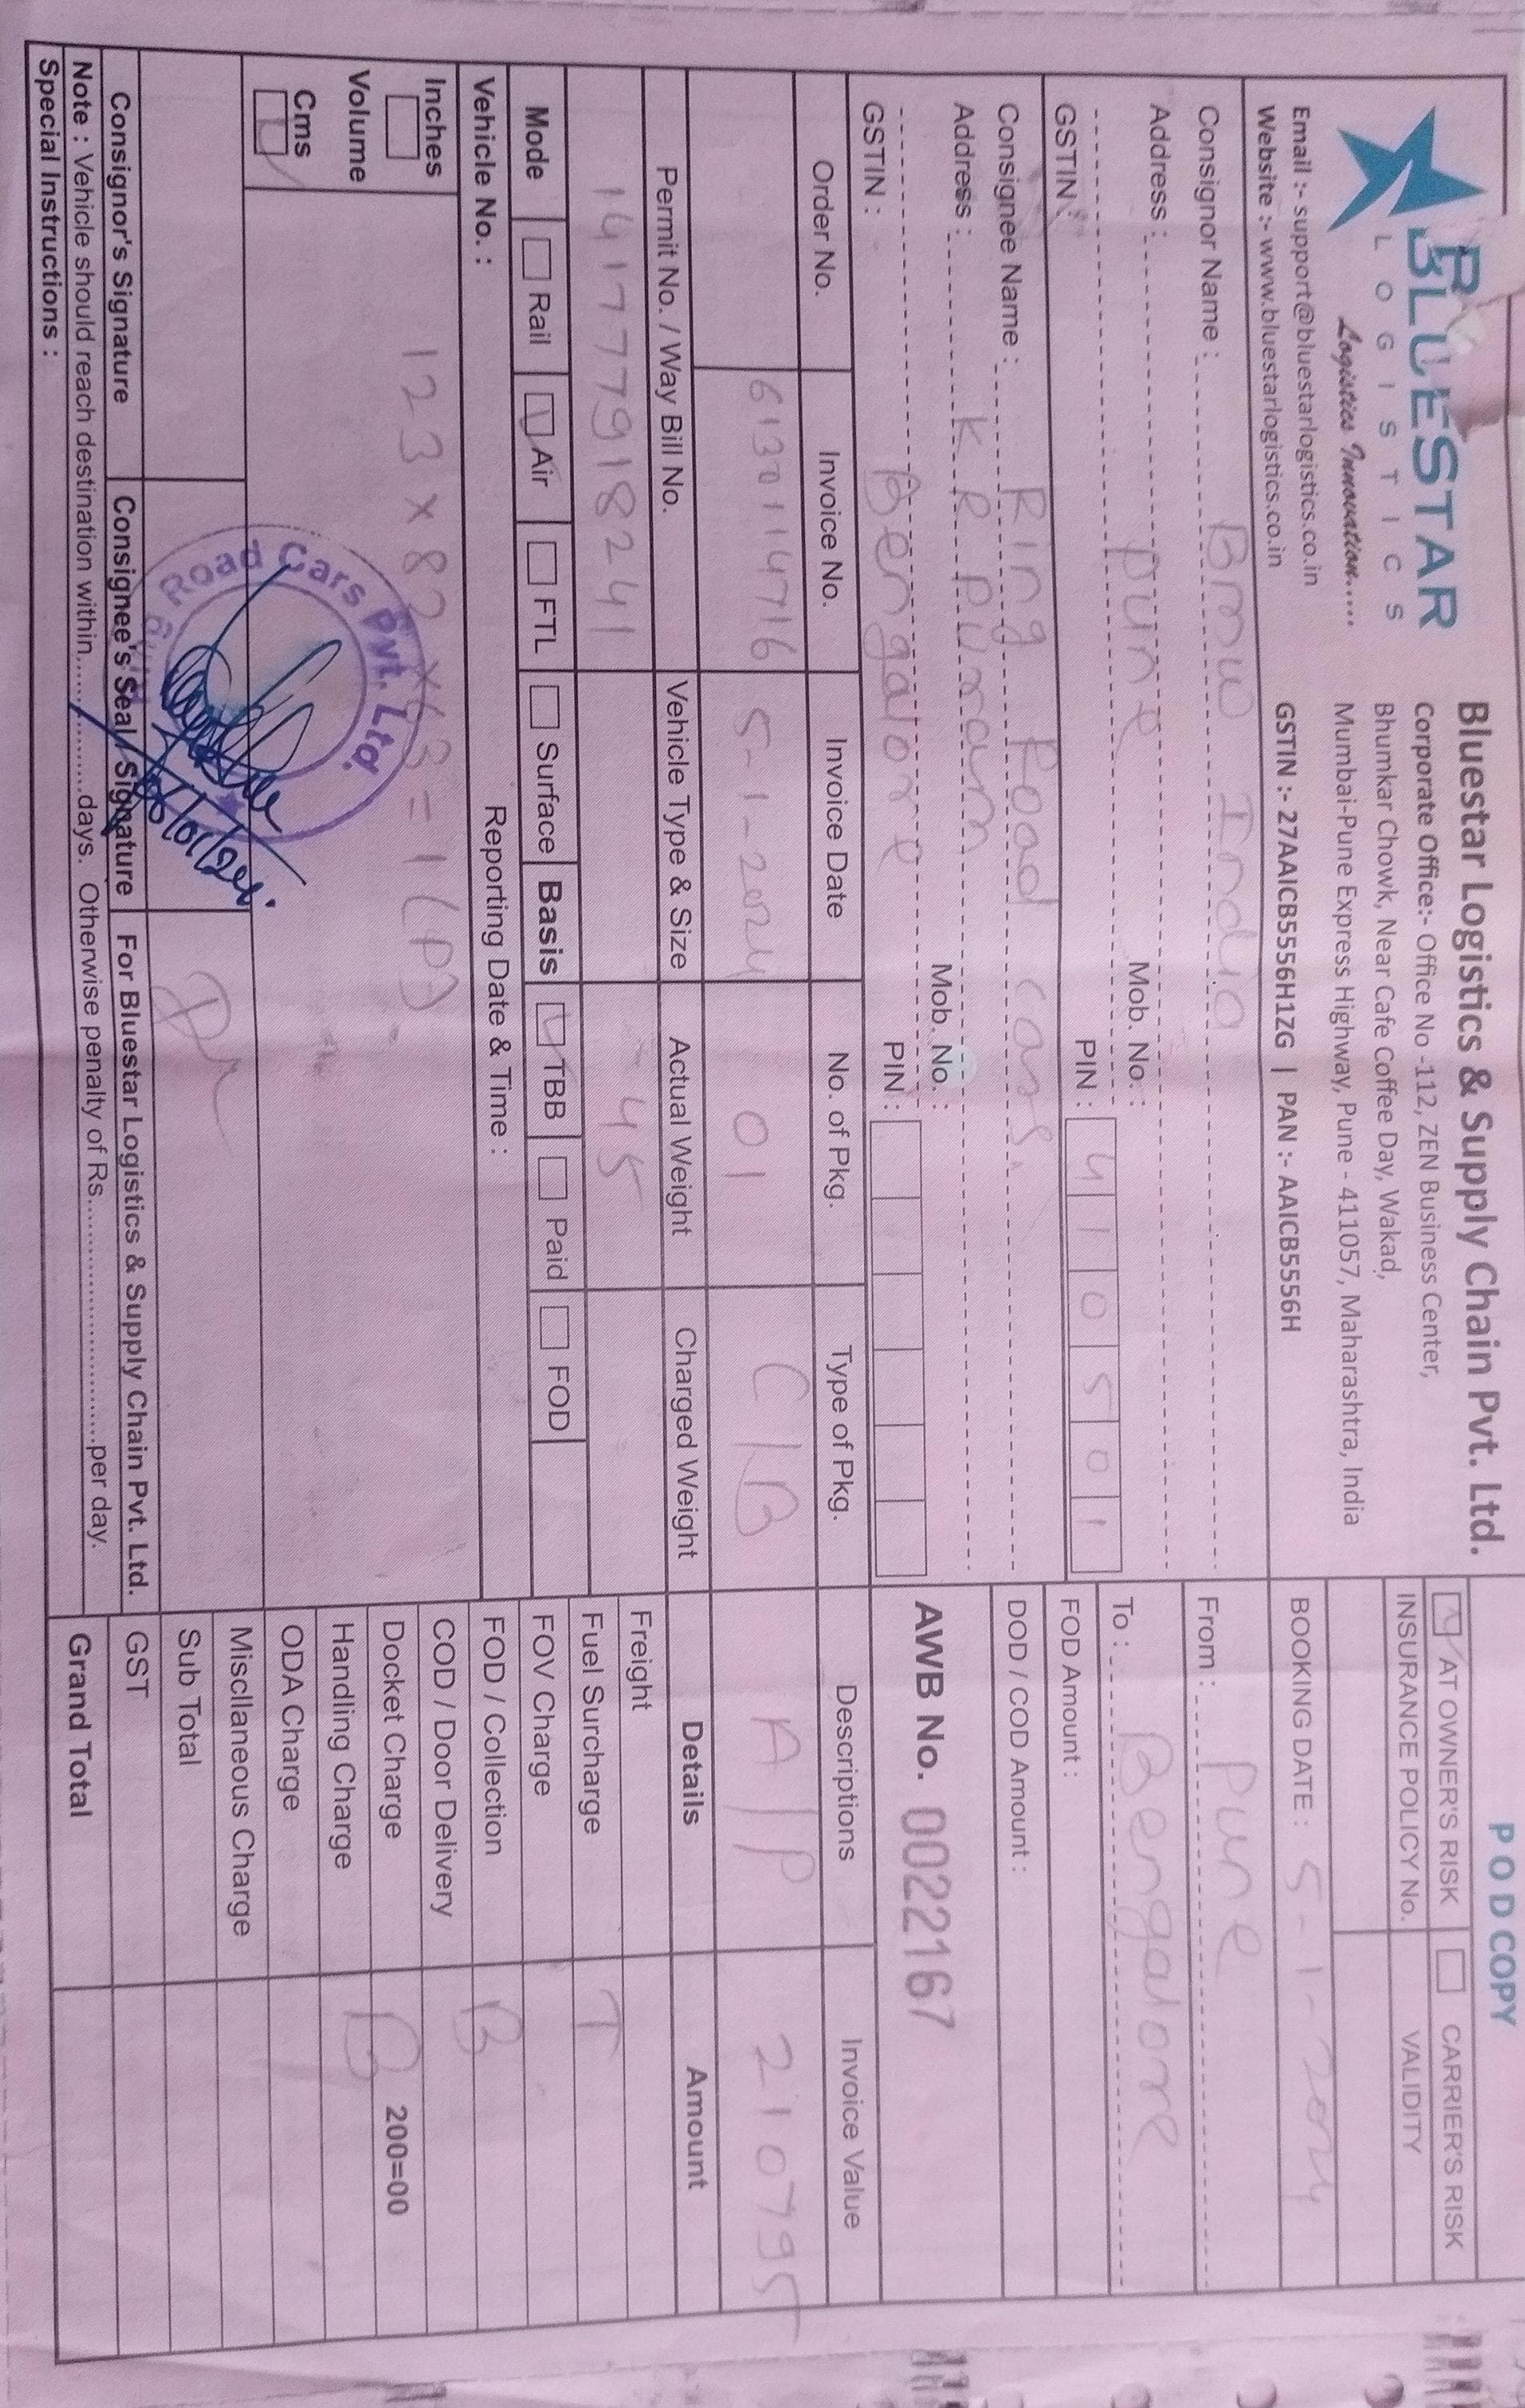 BLUESTAR
LOGISTICS
Logistics Innovation.....
Email :- support@bluestarlogistics.co.in
Website :- www.bluestarlogistics.co.in
Bluestar Logistics & Supply Chain Pvt. Ltd.
Corporate Office:- Office No -112, ZEN Business Center,
Bhumkar Chowk, Near Cafe Coffee Day, Wakad,
Mumbai-Pune Express Highway, Pune - 411057, Maharashtra, India
GSTIN :- 27AAICB5556H1ZG | PAN :- AAICB5556H
POD COPY
AT OWNER'S RISK CARRIER'S RISK
INSURANCE POLICY No. VALIDITY
BOOKING DATE : 5-1-2024
Consignor Name : Bmw India
Address :
Pune Mob. No. :
PIN : 410501
GSTIN :
From : Pune
To : Bengalore
FOD Amount :
DOD / COD Amount :
Consignee Name : Ring Road cars.
Address : K R Puram
Mob. No. :
Bengalore PIN :
GSTIN :
AWB No. 0022167
Order No. Invoice No. Invoice Date No. of Pkg. Type of Pkg. Descriptions Invoice Value
6130114716 5-1-2024 01 C/B A/P 210795
Permit No. / Way Bill No. Vehicle Type & Size Actual Weight Charged Weight Details Amount
141777918241 45
Mode Rail Air FTL Surface Basis TBB Paid FOD
Vehicle No. : Reporting Date & Time :
Freight
Fuel Surcharge T
FOV Charge
FOD / Collection B
COD / Door Delivery
Docket Charge B 200=00
Handling Charge
ODA Charge
Miscllaneous Charge
Sub Total
GST
Grand Total
Inches
Volume
Cms
123 x 82 x 63 = 1 (P)
Ring Road Cars Pvt. Ltd.
06/01/24
Consignor's Signature Consignee's Seal / Signature For Bluestar Logistics & Supply Chain Pvt. Ltd.
Note : Vehicle should reach destination within.................days. Otherwise penalty of Rs..............................per day.
Special Instructions :